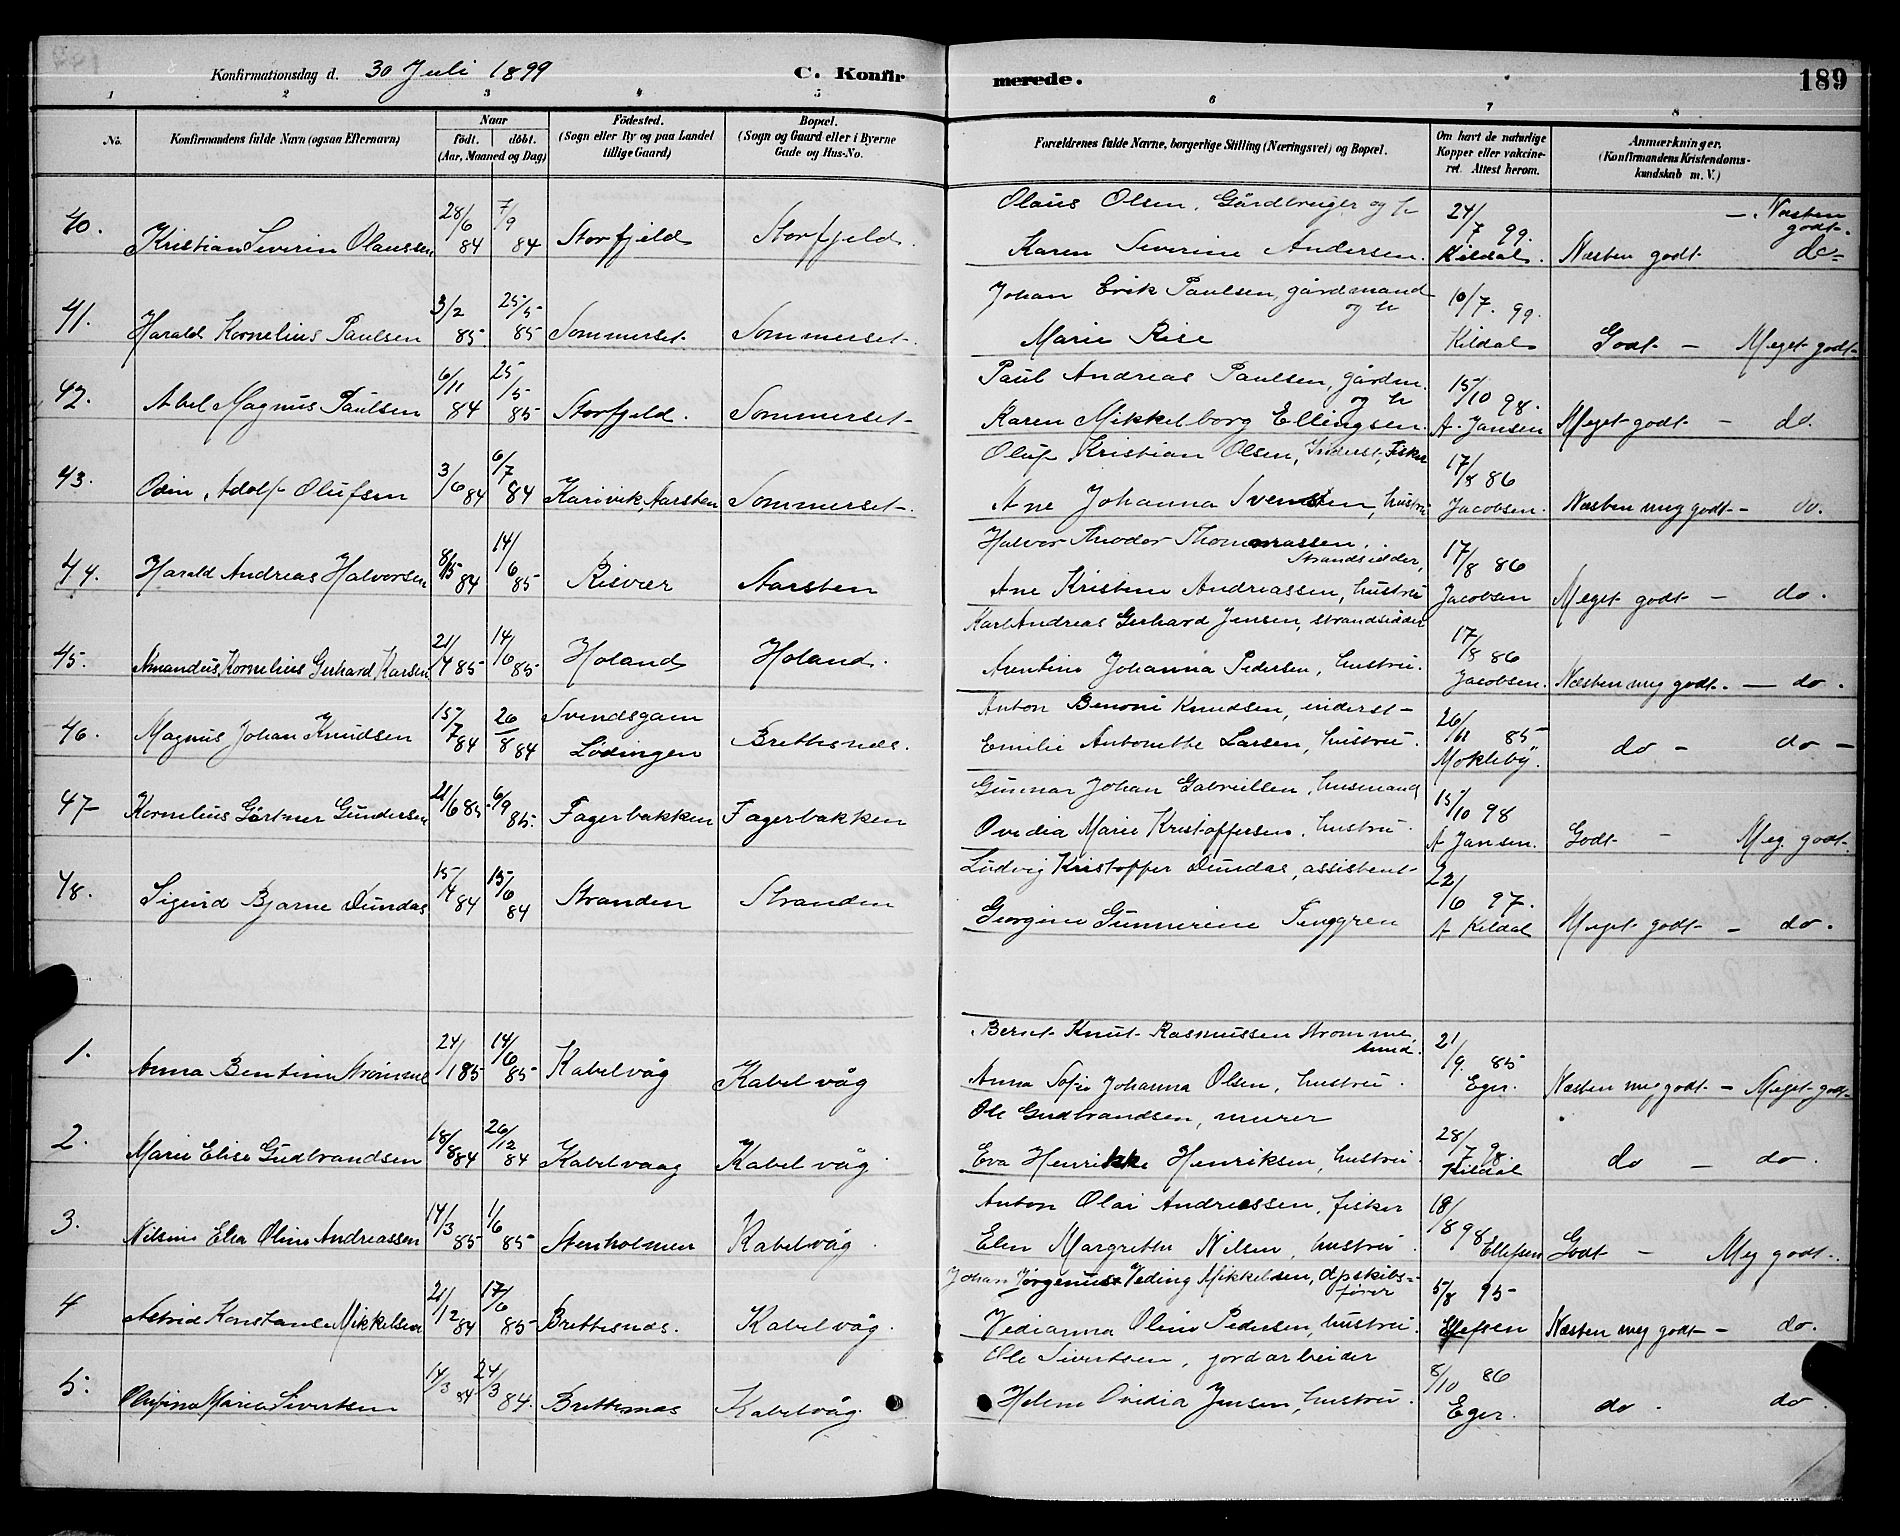 Konfirmationsdag d. 30 Juli 1899 C. Konfirmerede. 189
1 2 3 4 5 6 7 8
No. Konfirmandens fulde Navn (ogsaa Efternavn) Naar født. døbt. (Aar, Maaned og Dag) Fødested. (Sogn eller By og paa Landet tillige Gaard) Bopæl. (Sogn og Gaard eller i Byerne Gade og Hus-No. Forældrenes fulde Navne, borgerlige Stilling (Næringsvei) og Bopæl. Om havt de naturlige Kopper eller vakcineret. Attest herom. Anmærkninger. (Konfirmandens Kristendomskundskab m. V.)
40. Kristian Severin Olaussen 28/6 84 7/9 84 Storfjeld Storfjeld. Olaus Olsen, Gårdbruger og h 24/7 99. — Næsten godt-
Karen Severine Andersen. Kildal. Næsten godt do-
41. Harald Kornelius Paulsen 3/2 85 25/5 85 Sommerset Sommerset. Johan Erik Paulsen, gårdmand og h 10/7. 99.
Marie Rise Kildal Godt — Meget godt-
42. Abel Magnus Paulsen 6/11 84 25/5 85 Storfjeld. Sommerset- Paul Andreas Paulsen, gårdm. og h 15/10 98.
Karen Mikkelborg Ellingsen. A. Jansen Meget godt — do.
43. Odin Adolf Olufsen 3/6 84 6/7 84 Karivik, Aarsten Sommerset. Oluf Kristian Olsen, Inderst, Fisker 17/8 86
Ane Johanna Svendsen, hustru Jacobsen. Næsten meg godt — do.
44. Harald Andreas Halvorsen 8/15 84 14/6 85 Risvær Aarsten Halvor Theodor Thommassen, Strandsidder, 17/8 86
Ane Kristine Andreassen, hustru Jacobsen Meget godt — do.
45. Amandus Kornelius Gerhard Karsen 21/4 85 14/6 85 Holand Holand. Karl Andreas Gerhard Jensen, strandsidder 17/8 86
Arentine Johanna Pedersen, hustru. Jacobsen. Næsten meg godt. — do.
46. Magnus Johan Knudsen 15/7 84 26/8 84 Svendsgam Lødingen Brettesnæs. Anton Benoni Knudsen, inderst- 85
Emilie Antonette Larsen, hustru. Mokleby. do — do —
47- Kornelius Gørtner Gundersen 21/6 85 6/9 85. Fagerbakken Fagerbakken Gunnar Johan Gabrielsen, husmand 15/10 98
Ovidia Marie Kristoffersen, hustru. A Jansen. Godt — Meg. godt.
48. Sigurd Bjarne Dundas 15/4 84 15/6 84 Stranden Stranden Ludvig Kristoffer Dundas, assistent- 22/6 97.
Georgine Gunnerine Penggren A Kildal Meget godt — do.
1. Anna Bentine Strømme 24/1 85 14/6 85 Kabelvåg Kabelvåg Bernt Knut Rasmussen Strømme, 21/9 85
Anna Sofie Johanna Olsen, hustru. Eger. Næsten meg godt — Meget godt-
2. Marie Elise Gudbrandsen 18/8 84 26/12 84 Kabelvaag Kabelvåg Ole Gudbrandsen, murer 28/7 98.
Eva Henrikke Henriksen, hustru. Kildal do — do.
3. Nilsine Elea Oline Andreassen 14/3 85 1/6 85 Stenholmen Kabelvåg Anton Olai Andreassen, fisker 18/8 98
Elen Margrethe Nilsen, hustru. Ellefsen Godt — Meg godt.
4 Astrid Konstanse Mikkelsen 21/12 84 17/6 85 Brettesnæs. Kabelvåg. Johan Jørgenius Veding Mikkelsen, dpskibsfører 5/8 95
Vedianna Oline Pedersen, hustru. Ellefsen Næsten meg godt — do.
5. Olufine Marie Sivertsen 14/3 84 24/3 84. Brettesnæs Kabelvåg. Ole Sivertsen, jordarbeider 8/10 86
Helene Ovidia Jensen, hustru. Eger. do. do